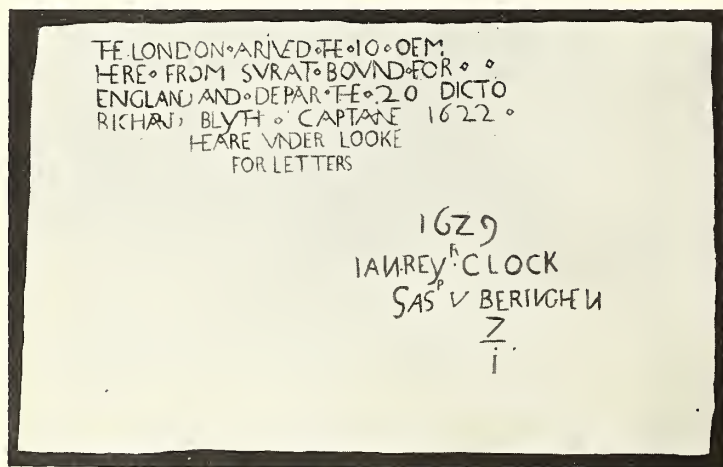 THE·LONDON·ARIVED·THE·10·OF M
HERE·FROM SVRAT·BOVND·FOR · ·
ENGLAND AND·DEPAR·THE·20 DICTO
RICHARD BLYTH · CAPTANE 1622 ·
HEARE VNDER LOOKE
FOR LETTERS
1629
IAN·REYʳ·CLOCK
SASᵖ V BERINGHEN
7
i